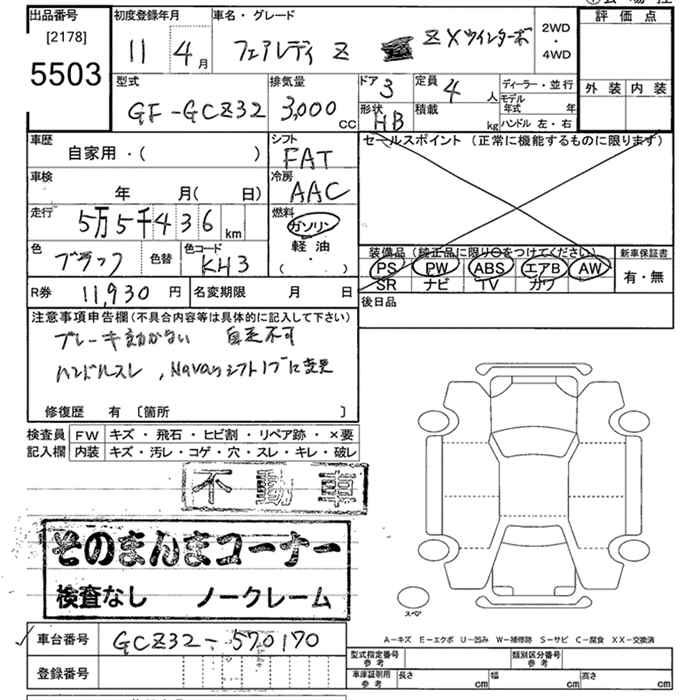 出品番号 [2178] 5503
初度登録年月 11 4月
車名・グレード フェアレディ Z ZXツインターボ
2WD・4WD
評価点
外装 内装
型式 GF-GCZ32
排気量 3,000 CC
ドア 3
定員 4 人
形状 HB
積載 kg
ディーラー・並行
モデル年式 年
ハンドル 左・右
車歴 自家用・( )
シフト FAT
セールスポイント (正常に機能するものに限ります)
車検 年 月( 日)
冷房 AAC
走行 5万5千436 km
燃料 ガソリン
軽油
( ・ )
色 ブラック 色替
色コード KH3
装備品 (純正品に限り○をつけてください)
PS PW ABS エアB AW
SR ナビ TV カワ
新車保証書 有・無
R券 11,930 円
名変期限 月 日
後日品
注意事項申告欄(不具合内容等は具体的に記入して下さい)
ブレーキ効かない 自走不可
ハンドルスレ , Navanシフトノブに変更
修復歴 有 〔箇所 〕
検査員 FW キズ・飛石・ヒビ割・リペア跡・×要
記入欄 内装 キズ・汚レ・コゲ・穴・スレ・キレ・破レ
不動車
そのまんまコーナー
検査なし ノークレーム
スペア
A-キズ E-エクボ U-凹み W-補修跡 S-サビ C-腐食 XX-交換済
車台番号 GCZ32-570170
登録番号
型式指定番号 参考
類別区分番号 参考
車庫証明用 参考 長さ cm 幅 cm 高さ cm